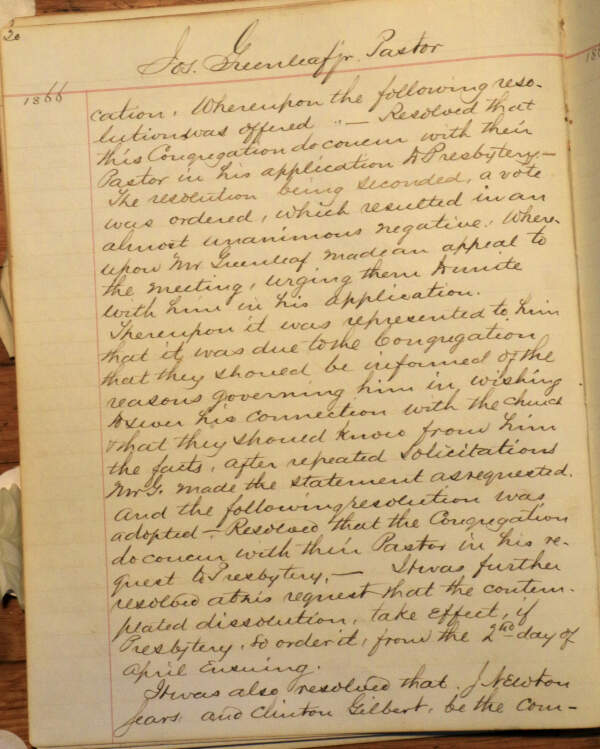 20
Jos. Greenleaf jr. Pastor
1866
cation. Whereupon the following reso-
lution was offered "— Resolved that
this Congregation do concur with their
Pastor in his application to Presbytery.—
The resolution being seconded, a vote
was ordered, which resulted in an
almost unanimous negative. Where-
upon Mr Greenleaf made an appeal to
the meeting, urging them to unite
with him in his application.
Thereupon it was represented to him
that it was due to the Congregation
that they should be informed of the
reasons governing him in wishing
to sever his connection with the church
& that they should know from him
the facts, after repeated solicitations
Mr G. made the statement as requested.
and the following resolution was
adopted — Resolved that the Congregation
do concur with their Pastor in his re-
quest to Presbytery, — It was further
resolved at his request that the contem-
plated dissolution, take effect, if
Presbytery, so order it, from the 2nd day of
April Ensuing.
It was also resolved that J. Newton
Sears and Clinton Gilbert, be the Com-